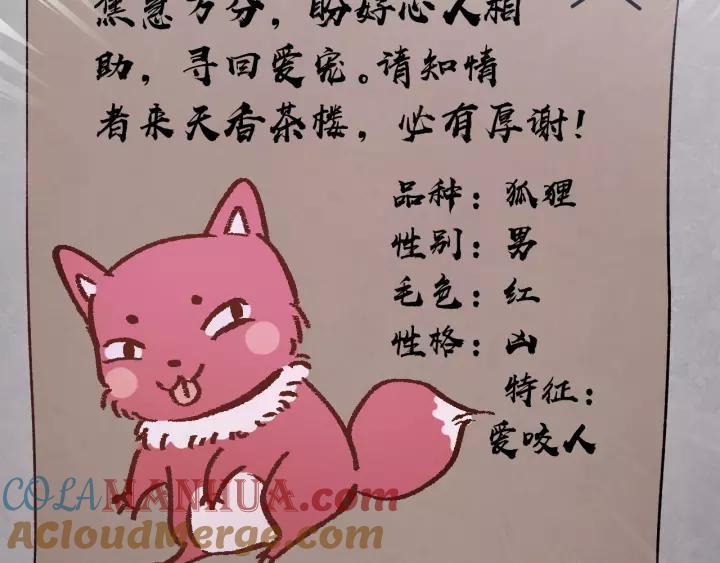 焦急万分，盼好心人相
助，寻回爱宠。请知情
者来天香茶楼，必有厚谢！
品种：狐狸
性别：男
毛色：红
性格：凶
特征：
爱咬人
COLAMANHUA.com
ACloudMerge.com